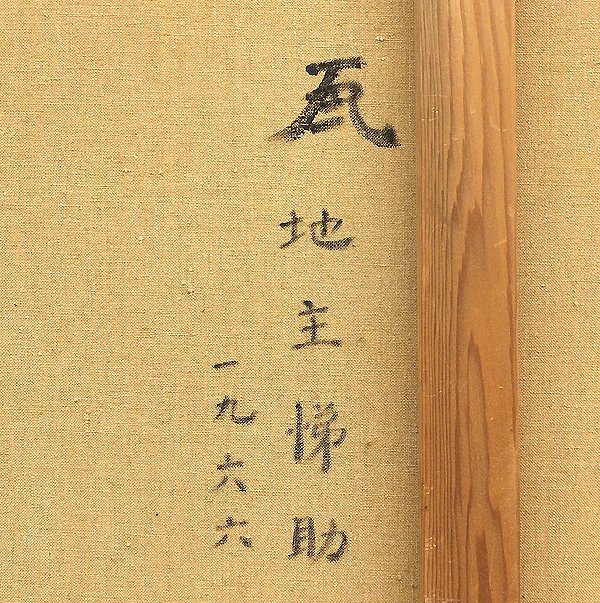 瓦 地主悌助
一九六六